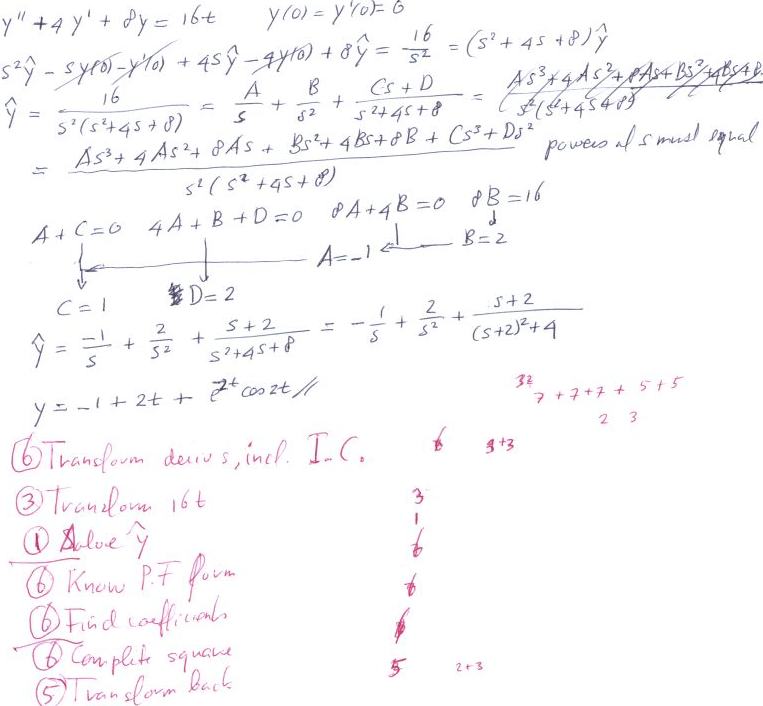 y'' + 4y' + 8y = 16t   y(0) = y'(0) = 0
s²ŷ - sy(0) - y'(0) + 4sŷ - 4y(0) + 8ŷ = 16/s² = (s² + 4s + 8)ŷ
ŷ = 16/(s²(s²+4s+8)) = A/s + B/s² + (Cs + D)/(s²+4s+8) = (As³+4As²+8As+Bs²+4Bs+8B)/(s²(s²+4s+8))
= (As³ + 4As² + 8As + Bs² + 4Bs + 8B + Cs³ + Ds²)/(s²(s²+4s+8)) powers of s must equal
A + C = 0   4A + B + D = 0   8A + 4B = 0   8B = 16
A = -1   B = 2
C = 1   D = 2
ŷ = -1/s + 2/s² + (s+2)/(s²+4s+8) = -1/s + 2/s² + (s+2)/((s+2)²+4)
y = -1 + 2t + e^-2t cos 2t //
32
7 + 7 + 7 + 5 + 5
2 3
⑥ Transform derivs, incl. I.C.   6   3+3
③ Transform 16t   3
① Solve ŷ   1
⑥ Know P.F form   6
⑥ Find coefficients   6
⑥ Complete square   6
⑤ Transform back   5   2+3